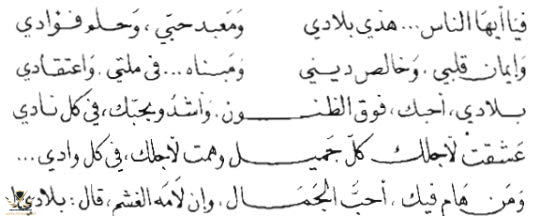 فيا أيها الناس... هذي بلادي ومعبد حبي، وحلم فؤادي
وإيمان قلبي، وخالص ديني ومبناه... في ملتي، واعتقادي
بلادي، أحبك، فوق الظنون، وأشدو بحبك، في كل نادي
عشقت لأجلك كل جميل وهمت لأجلك، في كل وادي...
ومن هام فيك، أحب الجمال، وإن لامه الغشم، قال: بلادي!